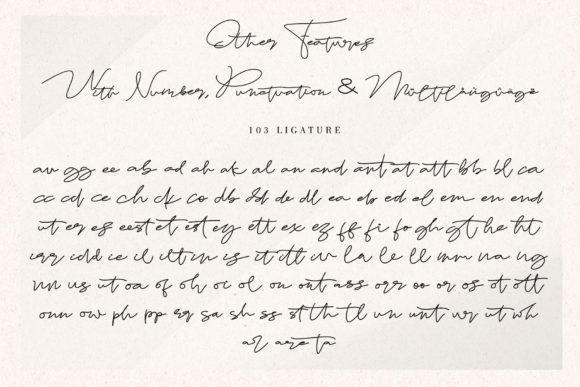 Other Features
With Number, Punctuation & Multilanguage
103 LIGATURE
av gg ee ab ad ah ak al an and ant at att bb bl ca
cc cd ce ch ck co db dd de dl ea eb ed el em en end
er es eest et ist ey ett ex ez ff fi fo gh gt he ht
irr idd ce il in is it itt iv la le ll mm na ng
nn us ut oa of oh oi ol on ont ass orr oo or os ot ott
onn ow ph pp rg sa sh ss st th tl un unt ur ut wh
ta